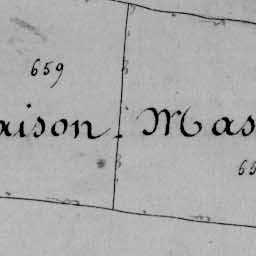 659
aison. Mas
65